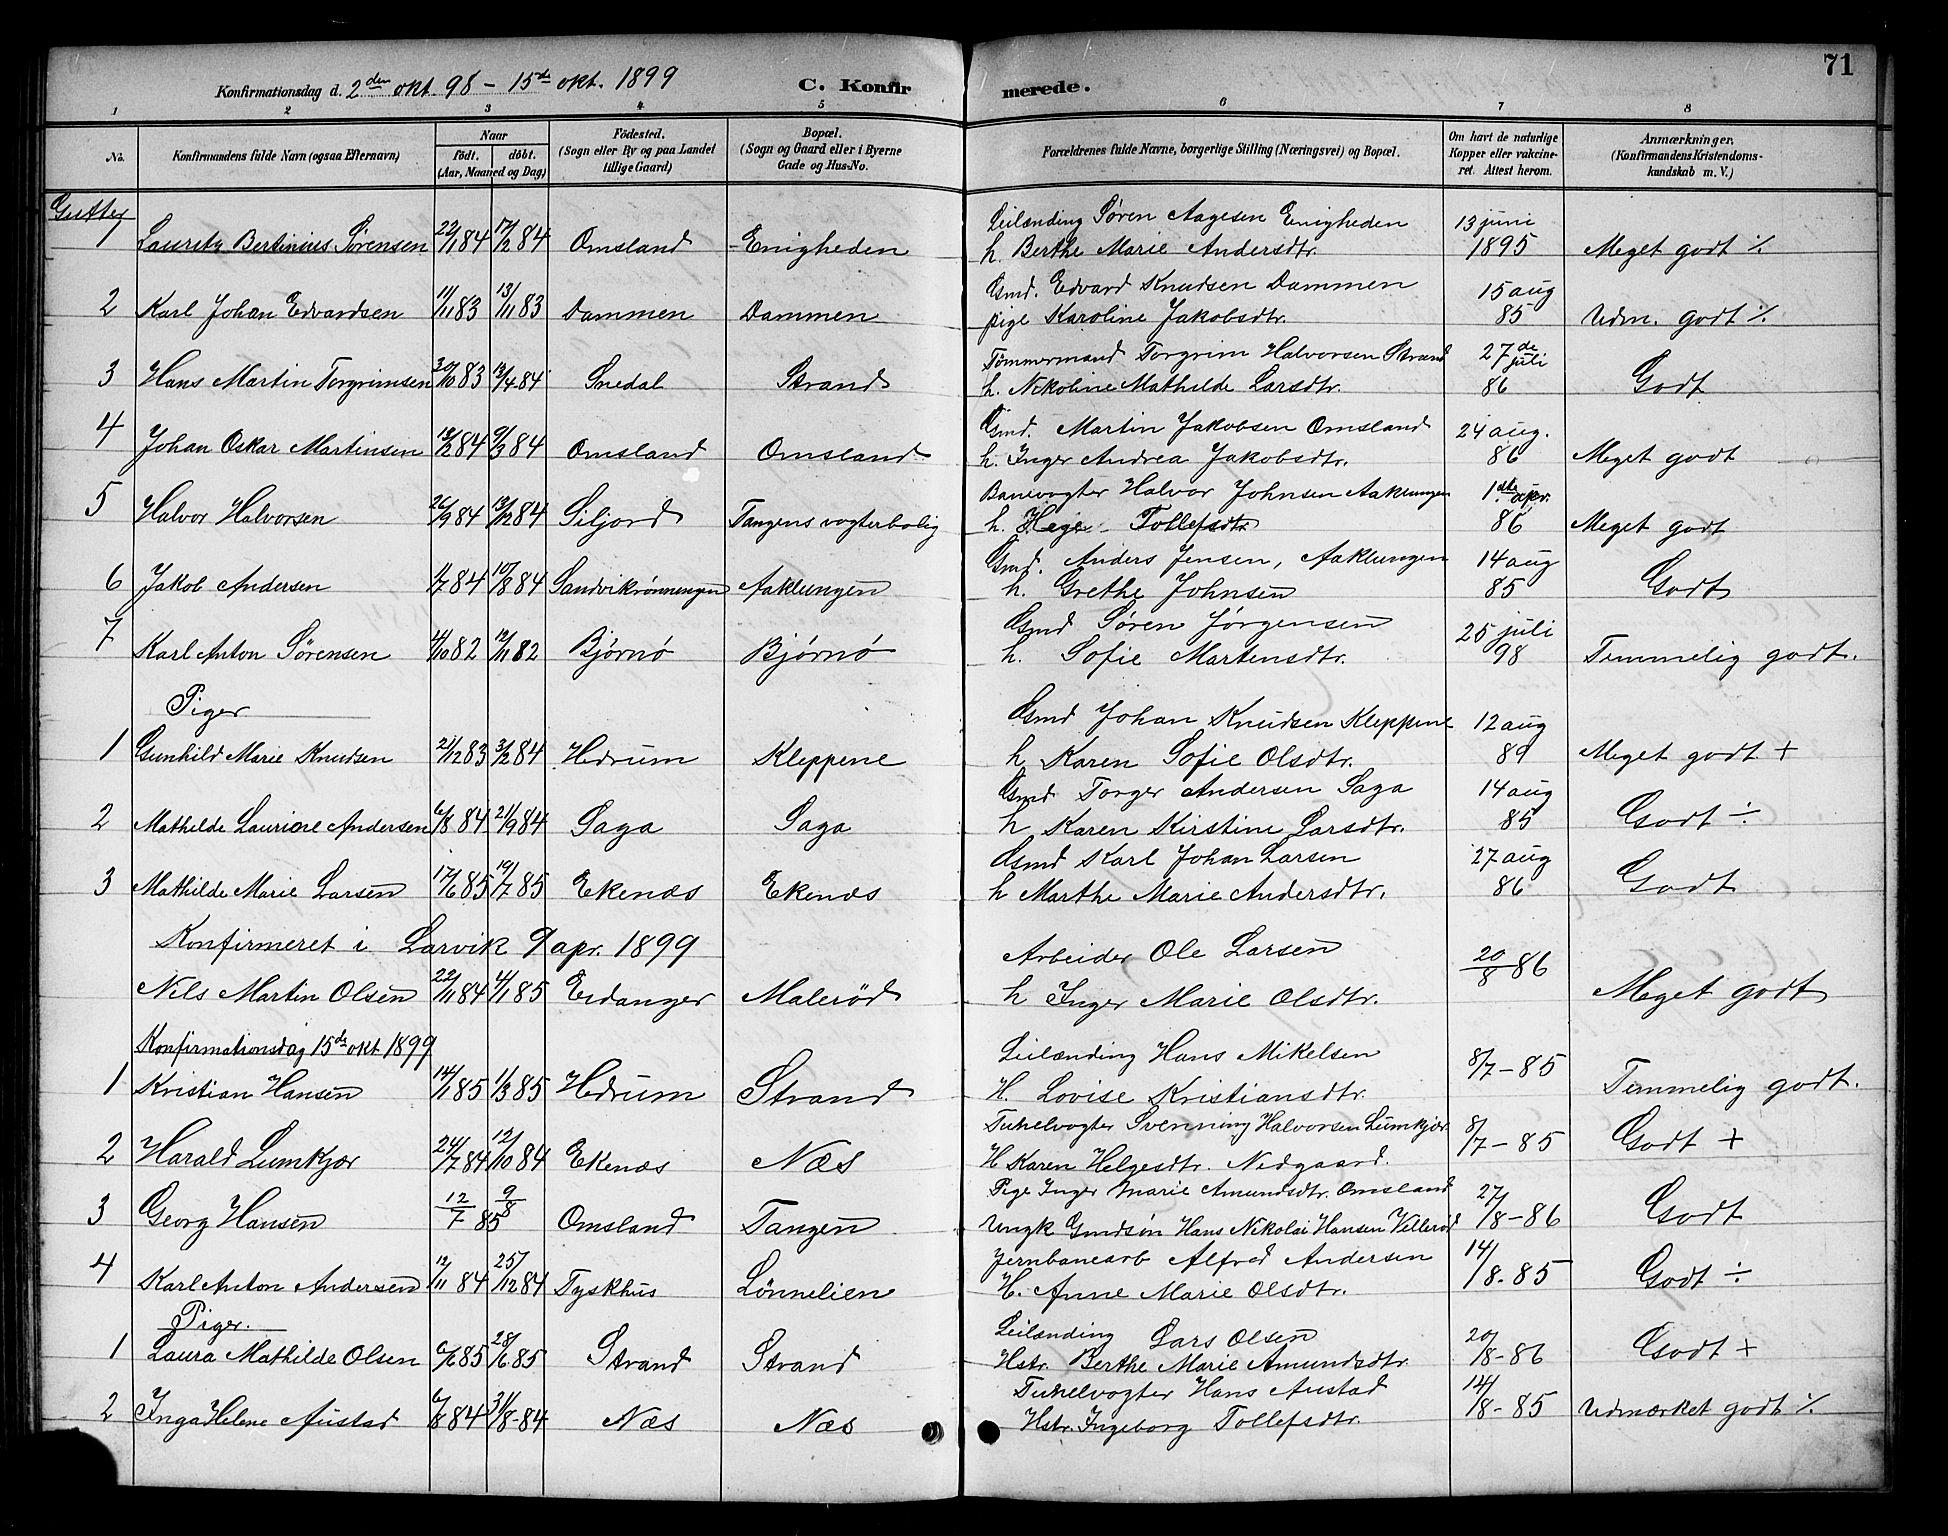 71
Konfirmationsdag d. 2den okt. 98 - 15de okt. 1899 C. Konfirmerede.
1 2 3 4 5 6 7 8
No. Konfirmandens fulde Navn (ogsaa Efternavn) Naar födt. döbt. (Aar, Maaned og Dag) Födested. (Sogn eller By og paa Landet tillige Gaard) Bopæl. (Sogn og Gaard eller i Byerne Gade og Hus-No. Forældrenes fulde Navne, borgerlige Stilling (Næringsvei) og Bopæl. Om havt de naturlige Kopper eller vakcineret. Attest herom. Anmærkninger. (Konfirmandens Kristendomskundskab m. V.)
Gutter
1 Lauritz Bertinius Sørensen 22/1 84 17/2 84 Omsland Enigheden Leilænding Søren Aagesen Enigheden 13 juni
h. Berthe Marie Andersdtr. 1895 Meget godt ٪
2 Karl Johan Edvardsen 11/11 83 13/11 83 Dammen Dammen Gmd. Edvard Knudsen Dammen 15 aug
pige Karoline Jakobsdtr. 85 Udm. godt ٪
3 Hans Martin Torgrimsen 30/10 83 13/4 84 Snedal Strand Tømmermand Torgrim Halvorsen Strand 27de juli
h. Nikoline Mathilde Larsdtr. 86 Godt
4 Johan Oskar Martinsen 84 9/3 84 Omsland Omsland Gmd. Martin Jakobsen Omsland 24 aug.
h. Inger Andrea Jakobsdtr. 86 Meget godt
5 Halvor Halvorsen 26/9 84 84 Siljord Tangens vogterbolig Banevogter Halvor Johnsen Aaklungen 1ste apr.
h. Hege Tollefsdtr 86 Meget godt
6 Jakob Andersen 84 10/8 84 Sandvikrønningen Aaklungen Gmd. Anders Jensen, Aaklungen 14 aug
h. Grethe Johnsen 85 Godt
7 Karl Anton Sørensen 4/10 82 12/11 82 Bjørnø Bjørnø Gmd Søren Jørgensen 25 juli
h. Sofie Martensdtr. 98 Temmelig godt.
Piger
1 Gunhild Marie Knudsen 21/12 83 3/2 84 Hedrum Kleppene Gmd Johan Knudsen Kleppene 12 aug
h Karen Sofie Olsdtr. 89 Meget godt +
2 Mathilde Laurine Andersen 6/8 84 21/9 84 Saga Saga Gmd. Torger Andersen Saga 14 aug
h Karen Kirstine Larsdtr. 85 Godt ÷
3 Mathilde Marie Larsen 17/6 85 19/7 85 Ekenæs Ekenæs Gmd Karl Johan Larsen 27 aug
h Marthe Marie Andersdtr. 86 Godt
Konfirmeret i Larvik 9 apr. 1899
Nils Martin Olsen 22/11 84 4/1 85 Eidanger Malerød Arbeider Ole Larsen 20/8 86
h Inger Marie Olsdtr. Meget godt
Konfirmationsdag 15de okt 1899
1 Kristian Hansen 14/1 85 1/3 85 Hedrum Strand Leilænding Hans Mikelsen 8/7 - 85
H. Lovise Kristiansdtr. Temmelig godt.
2 Harald Lumkjær 24/7 84 12/10 84 Ekenæs Næs Tunelvogter Svenning Halvorsen Lumkjær 8/7 - 85 Godt +
H Karen Helgesdtr. Nedgaard.
3 Georg Hansen 12/7 85 9/8 Omsland Tangen Pige Inger Marie Amundsdtr. Omsland 27/8 - 86 Godt
Ungk Gmdsøn Hans Nikolai Hansen Villerød
4 Karl Anton Andersen 12/11 84 25/12 84 Tyskhus Lønnelien Jernbanearb Alfred Andersen 14/8 - 85 Godt ÷
H. Anne Marie Olsdtr.
Piger.
1 Laura Mathilde Olsen 6/6 85 28/6 85 Strand Strand Leilænding Lars Olsen 20/8 - 86 Godt +
Hstr. Berthe Marie Amundsdtr.
2 Inga Helene Austad 6/8 84 31/8 - 84 Næs Næs Tunelvogter Hans Austad 14/8 - 85 Udmærket godt ٪
Hstr. Ingeborg Tollefsdtr.